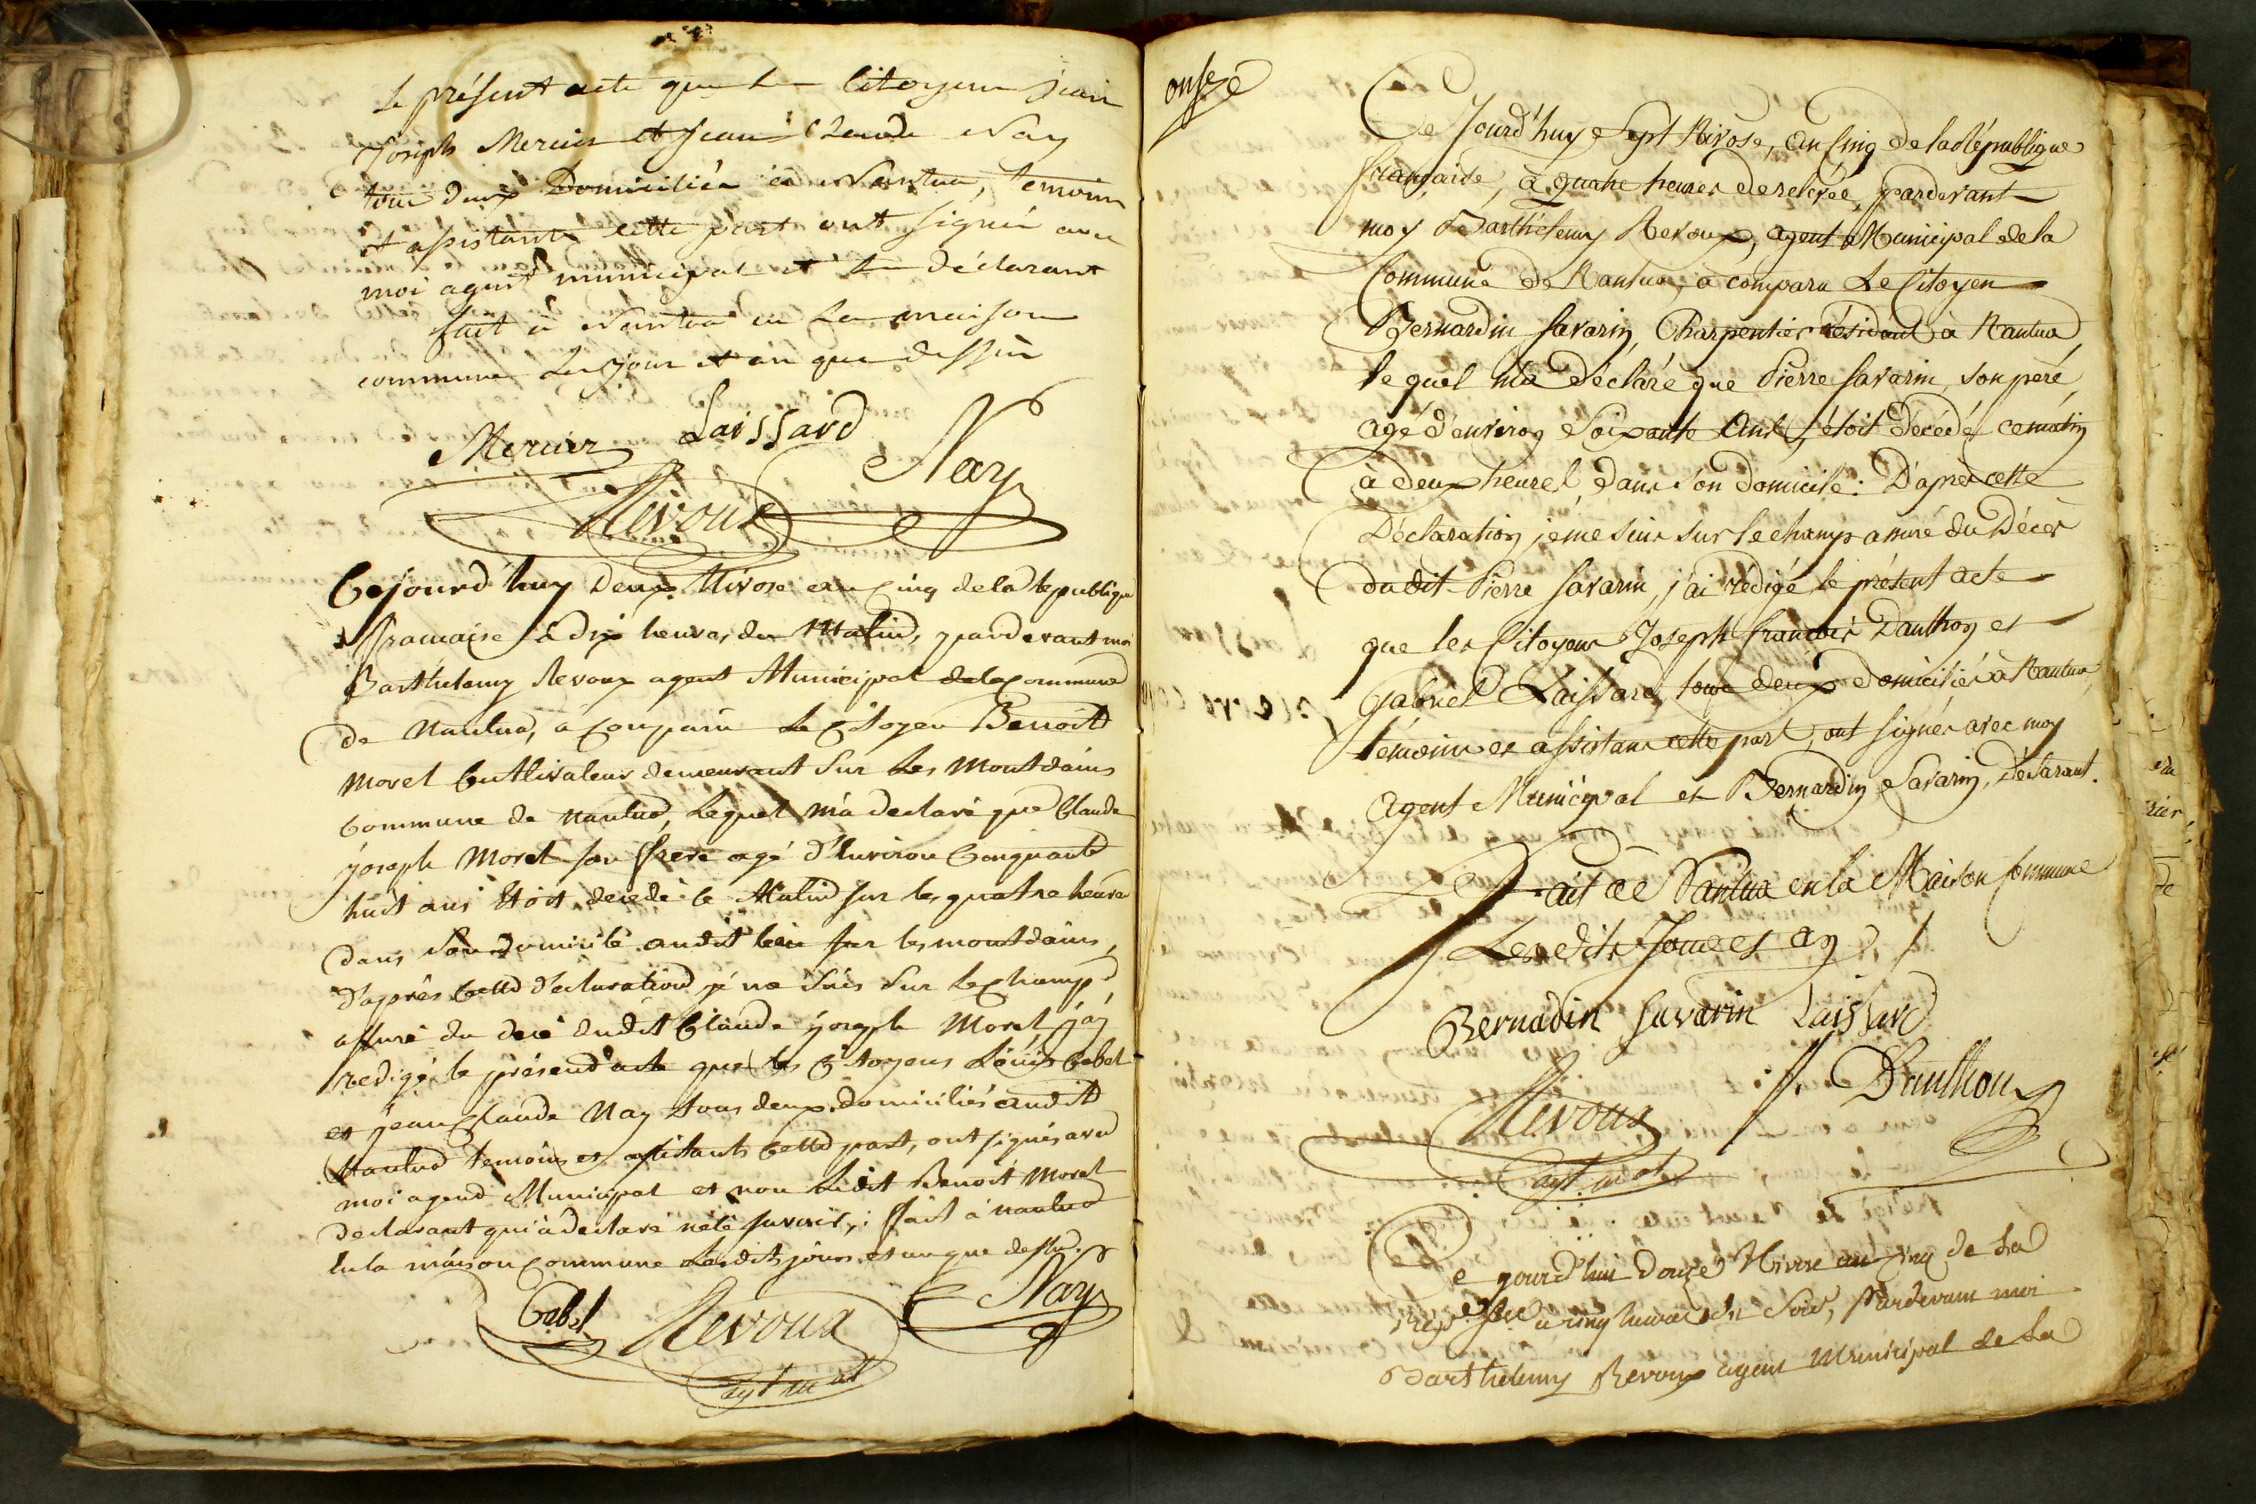 le présent acte que les Citoyens Jean
Joseph Mercier et Jean Claude Nay
tous deux Domiciliés à Nantua, temoins
et assistants cette part ont signés avec
moi agent municipal et le déclarant
fait à Nantua en La maison
commune Les jour et an que dessus
Mercier Laissard Nay
Revoux
Cejourd'huy deux Nivose an Cinq de la Republique
francaise à dix heures du Matin, pardevant moi
Barthelemy Revoux agent Municipal de la Commune
de Nantua, à Comparu le Citoyen Benoit
Moret Cultivateur demeurant sur Les Montdains
Commune de Nantua, Lequel m'a declaré que Claude
Joseph Moret son frere agé d'Environ Cinquante
huit ans étoit decedé ce Matin sur les quatre heures
dans son domicile audit lieu sur les montdains,
d'après Cette declaration je me suis sur le Champ
assuré du decé dudit Claude Joseph Moret j'ay
redigé le présend acte que les Citoyens Louis Gebel
et Jean Claude Nay tous deux domiciliés audit
Nantua temoins et assistants Cette part, ont signés avec
moi agend Municipal et non Ledit Benoit Moret
declarant qui à declaré ne le savoir; fait à nantua
En la maison Commune Lesdits jours et an que dessus.
Gebel Revoux Nay
agt mal
onze
Ce Jourd'huy Sept Nivose, an Cinq de la République
française, à quatre heures de relevée, pardevant
moy Barthélemy Revoux, agent Municipal de la
Commune de Nantua, a comparu Le Citoyen
Bernardin Savarin, Charpentier résidant à Nantua
le quel m'a déclaré que Pierre Savarin, son pere,
agé d'environ Soixante Ans, étoit décédé ce matin
à deux heures dans son domicile: D'après cette
Déclaration je me suis sur le champ assuré du Décès
dudit Pierre Savarin, j'ai rédigé le présent acte
que les Citoyens Joseph françois Danthon et
Gabriel Laissard, tous deux domiciliés à Nantua,
témoins et assistans cette part, ont signés avec moy
Agent Municipal et Bernardin Savarin, déclarant.
Fait à Nantua en la Maison Commune
Les dits Jour et an
Bernadin Savarin Laissard
Revoux J. Danthon
agt mal
Ce jourd'hui douze Nivose an cinq de La
Rep. fse à cinq heures du Soir, Pardevant moi
Barthelemy Revoux agent Municipal de La